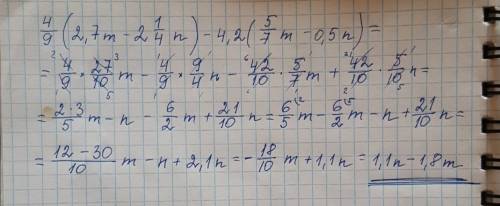 4/9 (2,7m - 2 1/4 n) - 4,2 (5/7 m - 0,5n) =
= 4/9 × 27/10 m - 4/9 × 9/4 n - 42/10 · 5/7 m + 42/10 · 5/10 n =
= 2·3/5 m - n - 6/2 m + 21/10 n = 6/5 m - 6/2 m - n + 21/10 n =
= 12 - 30/10 m - n + 2,1n = - 18/10 m + 1,1n = 1,1n - 1,8m